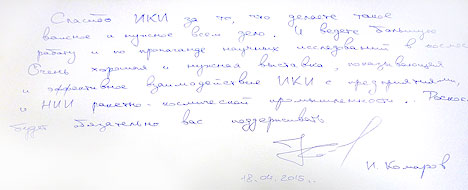 Спасибо ИКИ за то, что делаете такое
важное и нужное всем дело. И ведете большую
работу и по пропаганде научных исследований в космосе
Очень хорошая и нужная выставка, показывающая
и эффективное взаимодействие ИКИ с предприятиями
и НИИ ракетно-космической промышленности. Роскос
будет обязательно вас поддерживать
И. Комаров
18.04.2015.